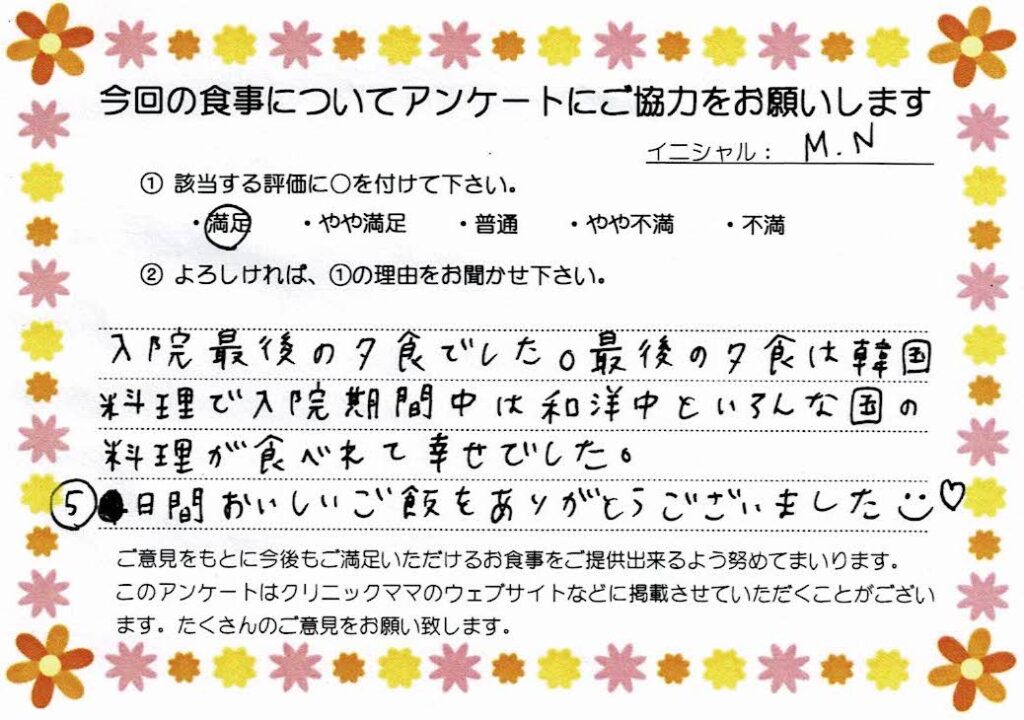 今回の食事についてアンケートにご協力をお願いします
イニシャル： M.N
① 該当する評価に○を付けて下さい。
・満足 ・やや満足 ・普通 ・やや不満 ・不満
② よろしければ、①の理由をお聞かせ下さい。
入院最後の夕食でした。最後の夕食は韓国
料理で入院期間中は和洋中といろんな国の
料理が食べれて幸せでした。
⑤日間おいしいご飯をありがとうございました
ご意見をもとに今後もご満足いただけるお食事をご提供出来るよう努めてまいります。
このアンケートはクリニックママのウェブサイトなどに掲載させていただくことがござい
ます。たくさんのご意見をお願い致します。